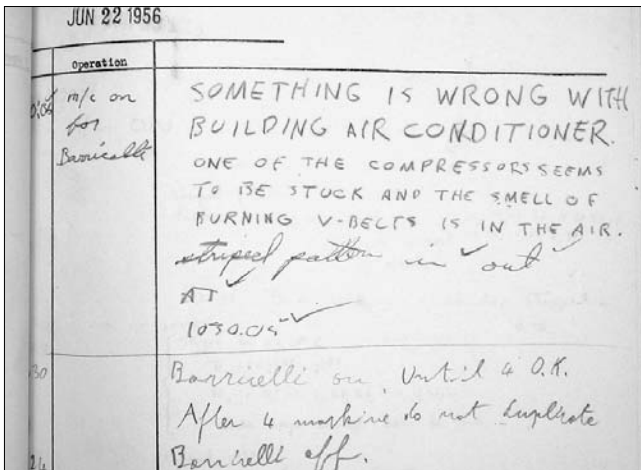 JUN 22 1956
Operation
m/c on
for
Barricelli
SOMETHING IS WRONG WITH
BUILDING AIR CONDITIONER.
ONE OF THE COMPRESSORS SEEMS
TO BE STUCK AND THE SMELL OF
BURNING V-BELTS IS IN THE AIR.
striped pattern in ✓ out ✓
AT ✓
1030.05 ✓✓
Barricelli on. Until 4 O.K.
After 4 machine do not duplicate
Barricelli off.